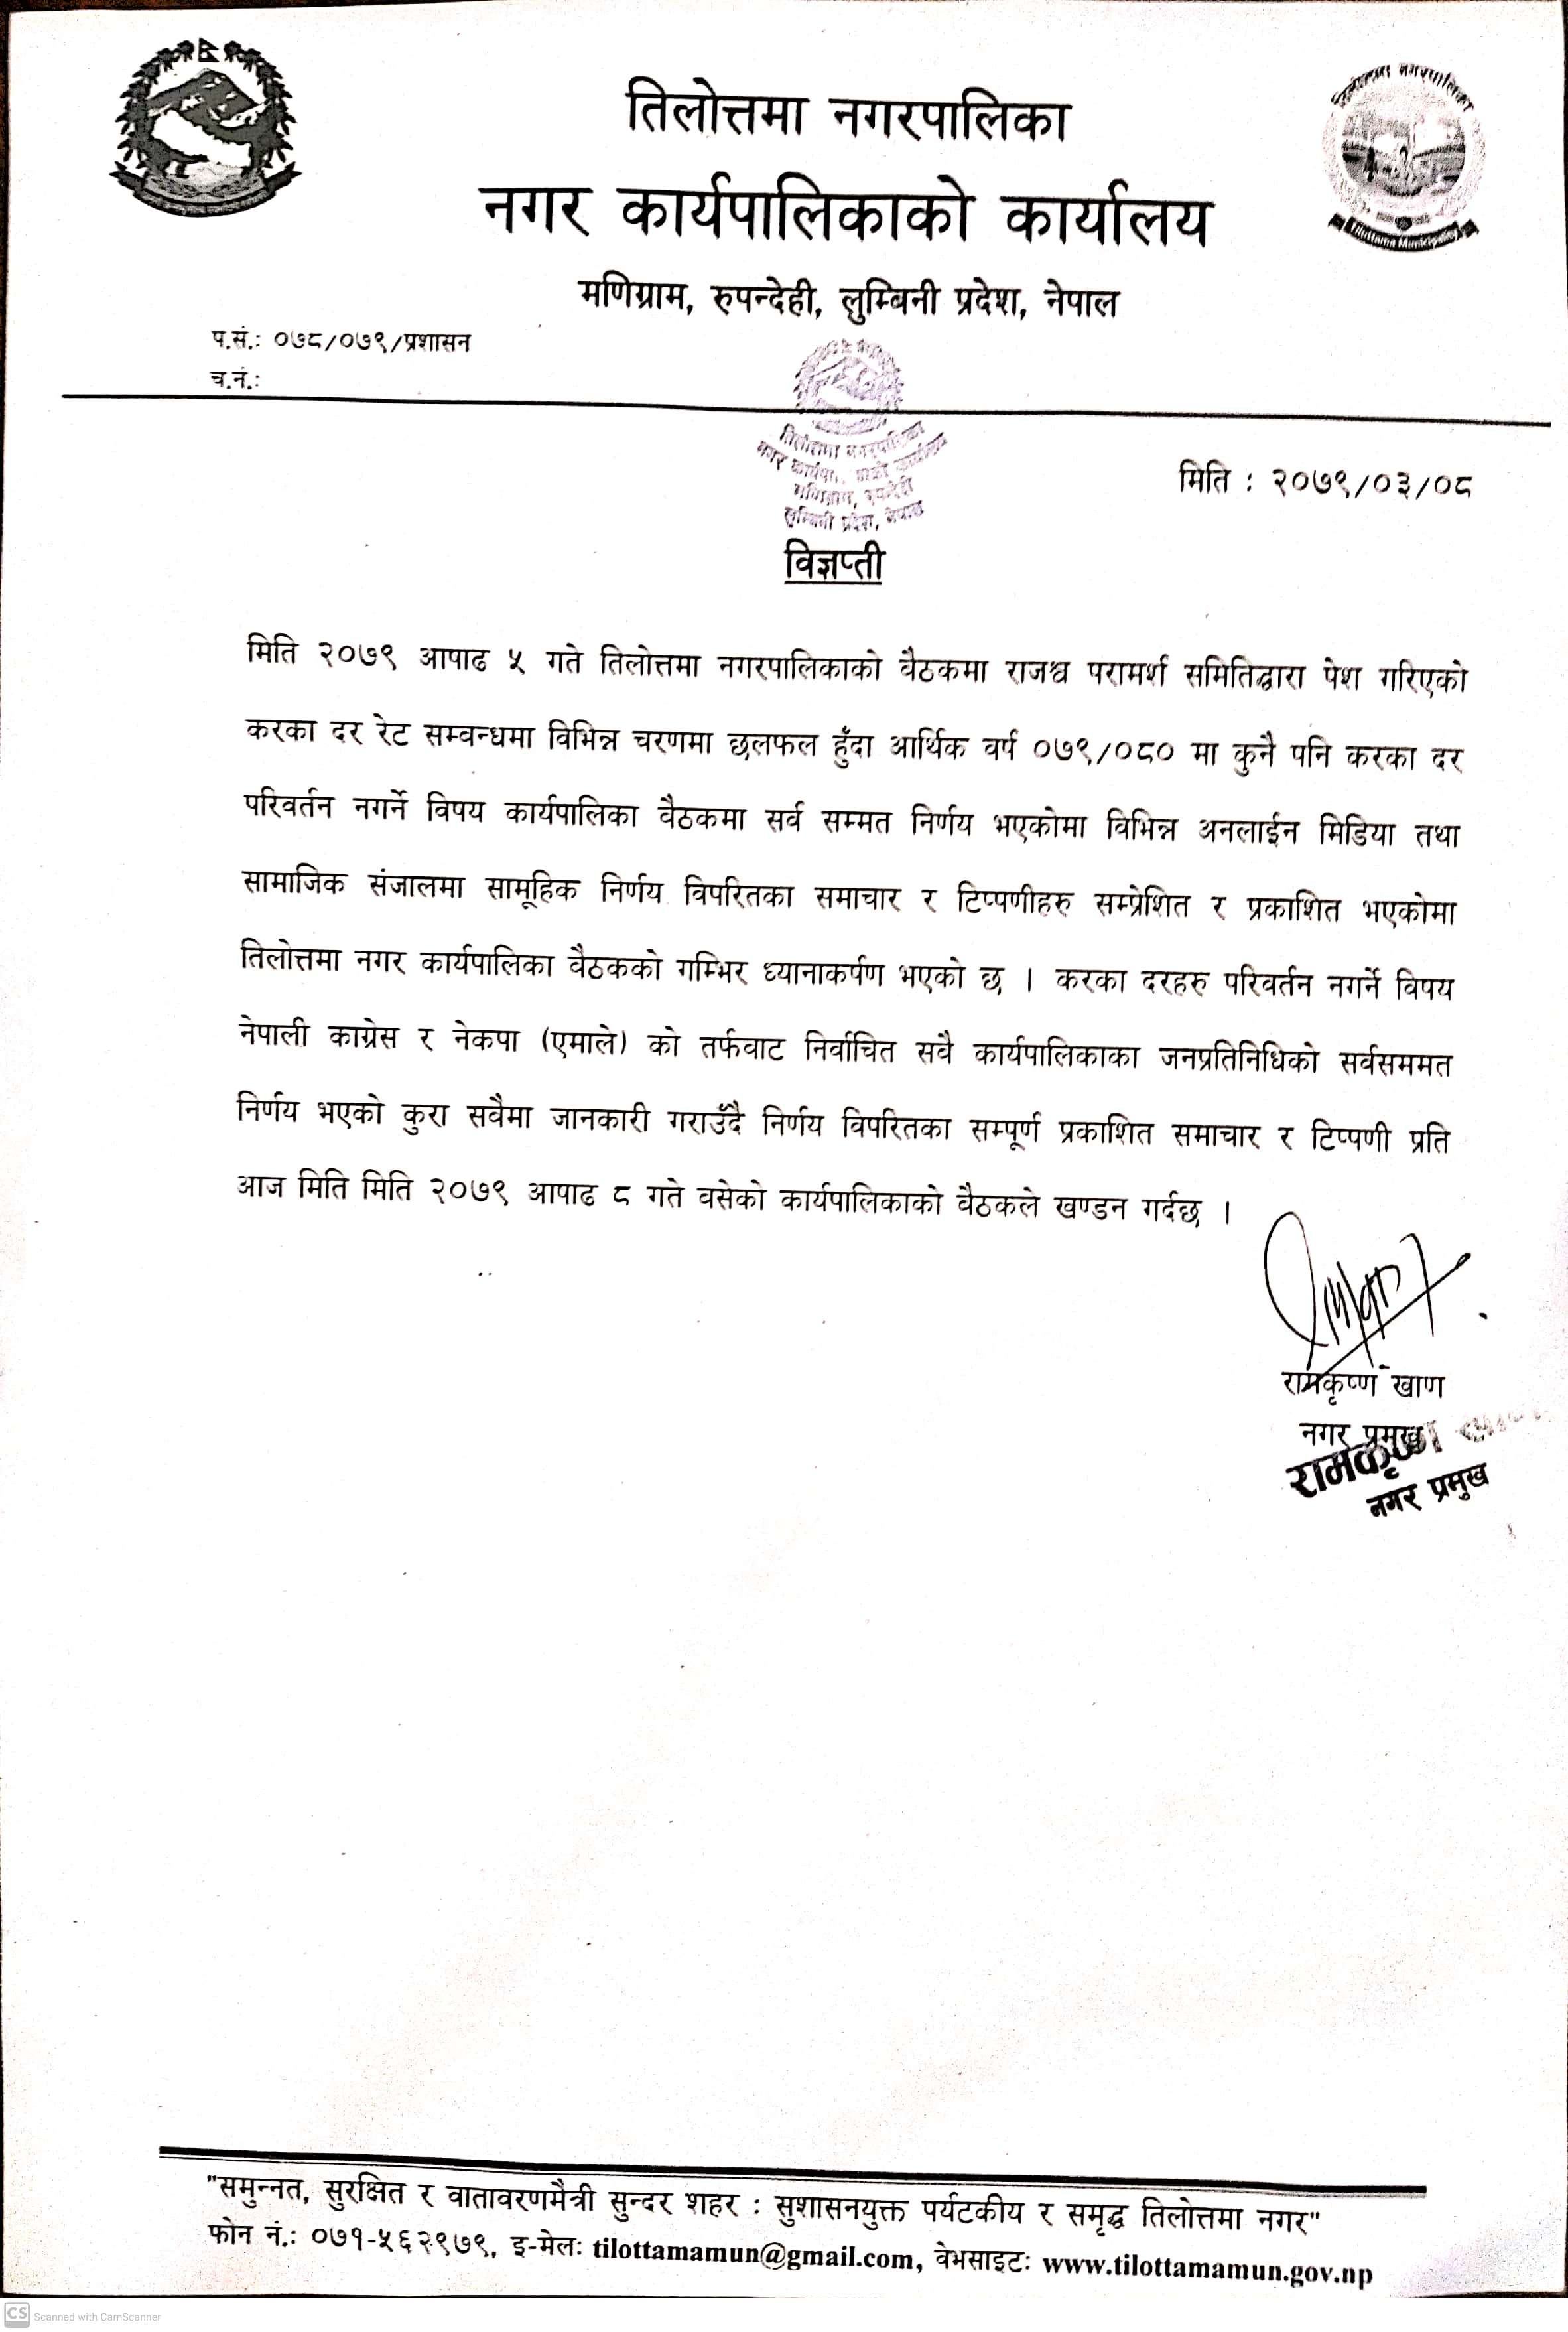 तिलोत्तमा नगरपालिका
तिलोत्तमा नगरपालिका
नगर कार्यपालिकाको कार्यालय
Tilottama Municipality
मणिग्राम, रुपन्देही, लुम्बिनी प्रदेश, नेपाल
प.सं.: ०७८/०७९/प्रशासन
च.नं.:
तिलोत्तमा नगरपालिका
मणिग्राम, रुपन्देही
लुम्बिनी प्रदेश, नेपाल
मिति : २०७९/०३/०८
विज्ञप्ती
मिति २०७९ आषाढ ५ गते तिलोत्तमा नगरपालिकाको वैठकमा राजश्व परामर्श समितिद्धारा पेश गरिएको
करका दर रेट सम्वन्धमा विभिन्न चरणमा छलफल हुँदा आर्थिक वर्ष ०७९/०८० मा कुनै पनि करका दर
परिवर्तन नगर्ने विषय कार्यपालिका वैठकमा सर्व सम्मत निर्णय भएकोमा विभिन्न अनलाईन मिडिया तथा
सामाजिक संजालमा सामूहिक निर्णय विपरितका समाचार र टिप्पणीहरु सम्प्रेशित र प्रकाशित भएकोमा
तिलोत्तमा नगर कार्यपालिका वैठकको गम्भिर ध्यानाकर्षण भएको छ । करका दरहरु परिवर्तन नगर्ने विषय
नेपाली काग्रेस र नेकपा (एमाले) को तर्फवाट निर्वाचित सवै कार्यपालिकाका जनप्रतिनिधिको सर्वसममत
निर्णय भएको कुरा सवैमा जानकारी गराउँदै निर्णय विपरितका सम्पूर्ण प्रकाशित समाचार र टिप्पणी प्रति
आज मिति मिति २०७९ आषाढ ८ गते वसेको कार्यपालिकाको वैठकले खण्डन गर्दछ ।
रामकृष्ण खाण
नगर प्रमुख
रामकृष्ण
नगर प्रमुख
"समुन्नत, सुरक्षित र वातावरणमैत्री सुन्दर शहर : सुशासनयुक्त पर्यटकीय र समृद्ध तिलोत्तमा नगर"
फोन नं.: ०७१-५६२९७९, इ-मेलः tilottamamun@gmail.com, वेभसाइटः www.tilottamamun.gov.np
CS Scanned with CamScanner